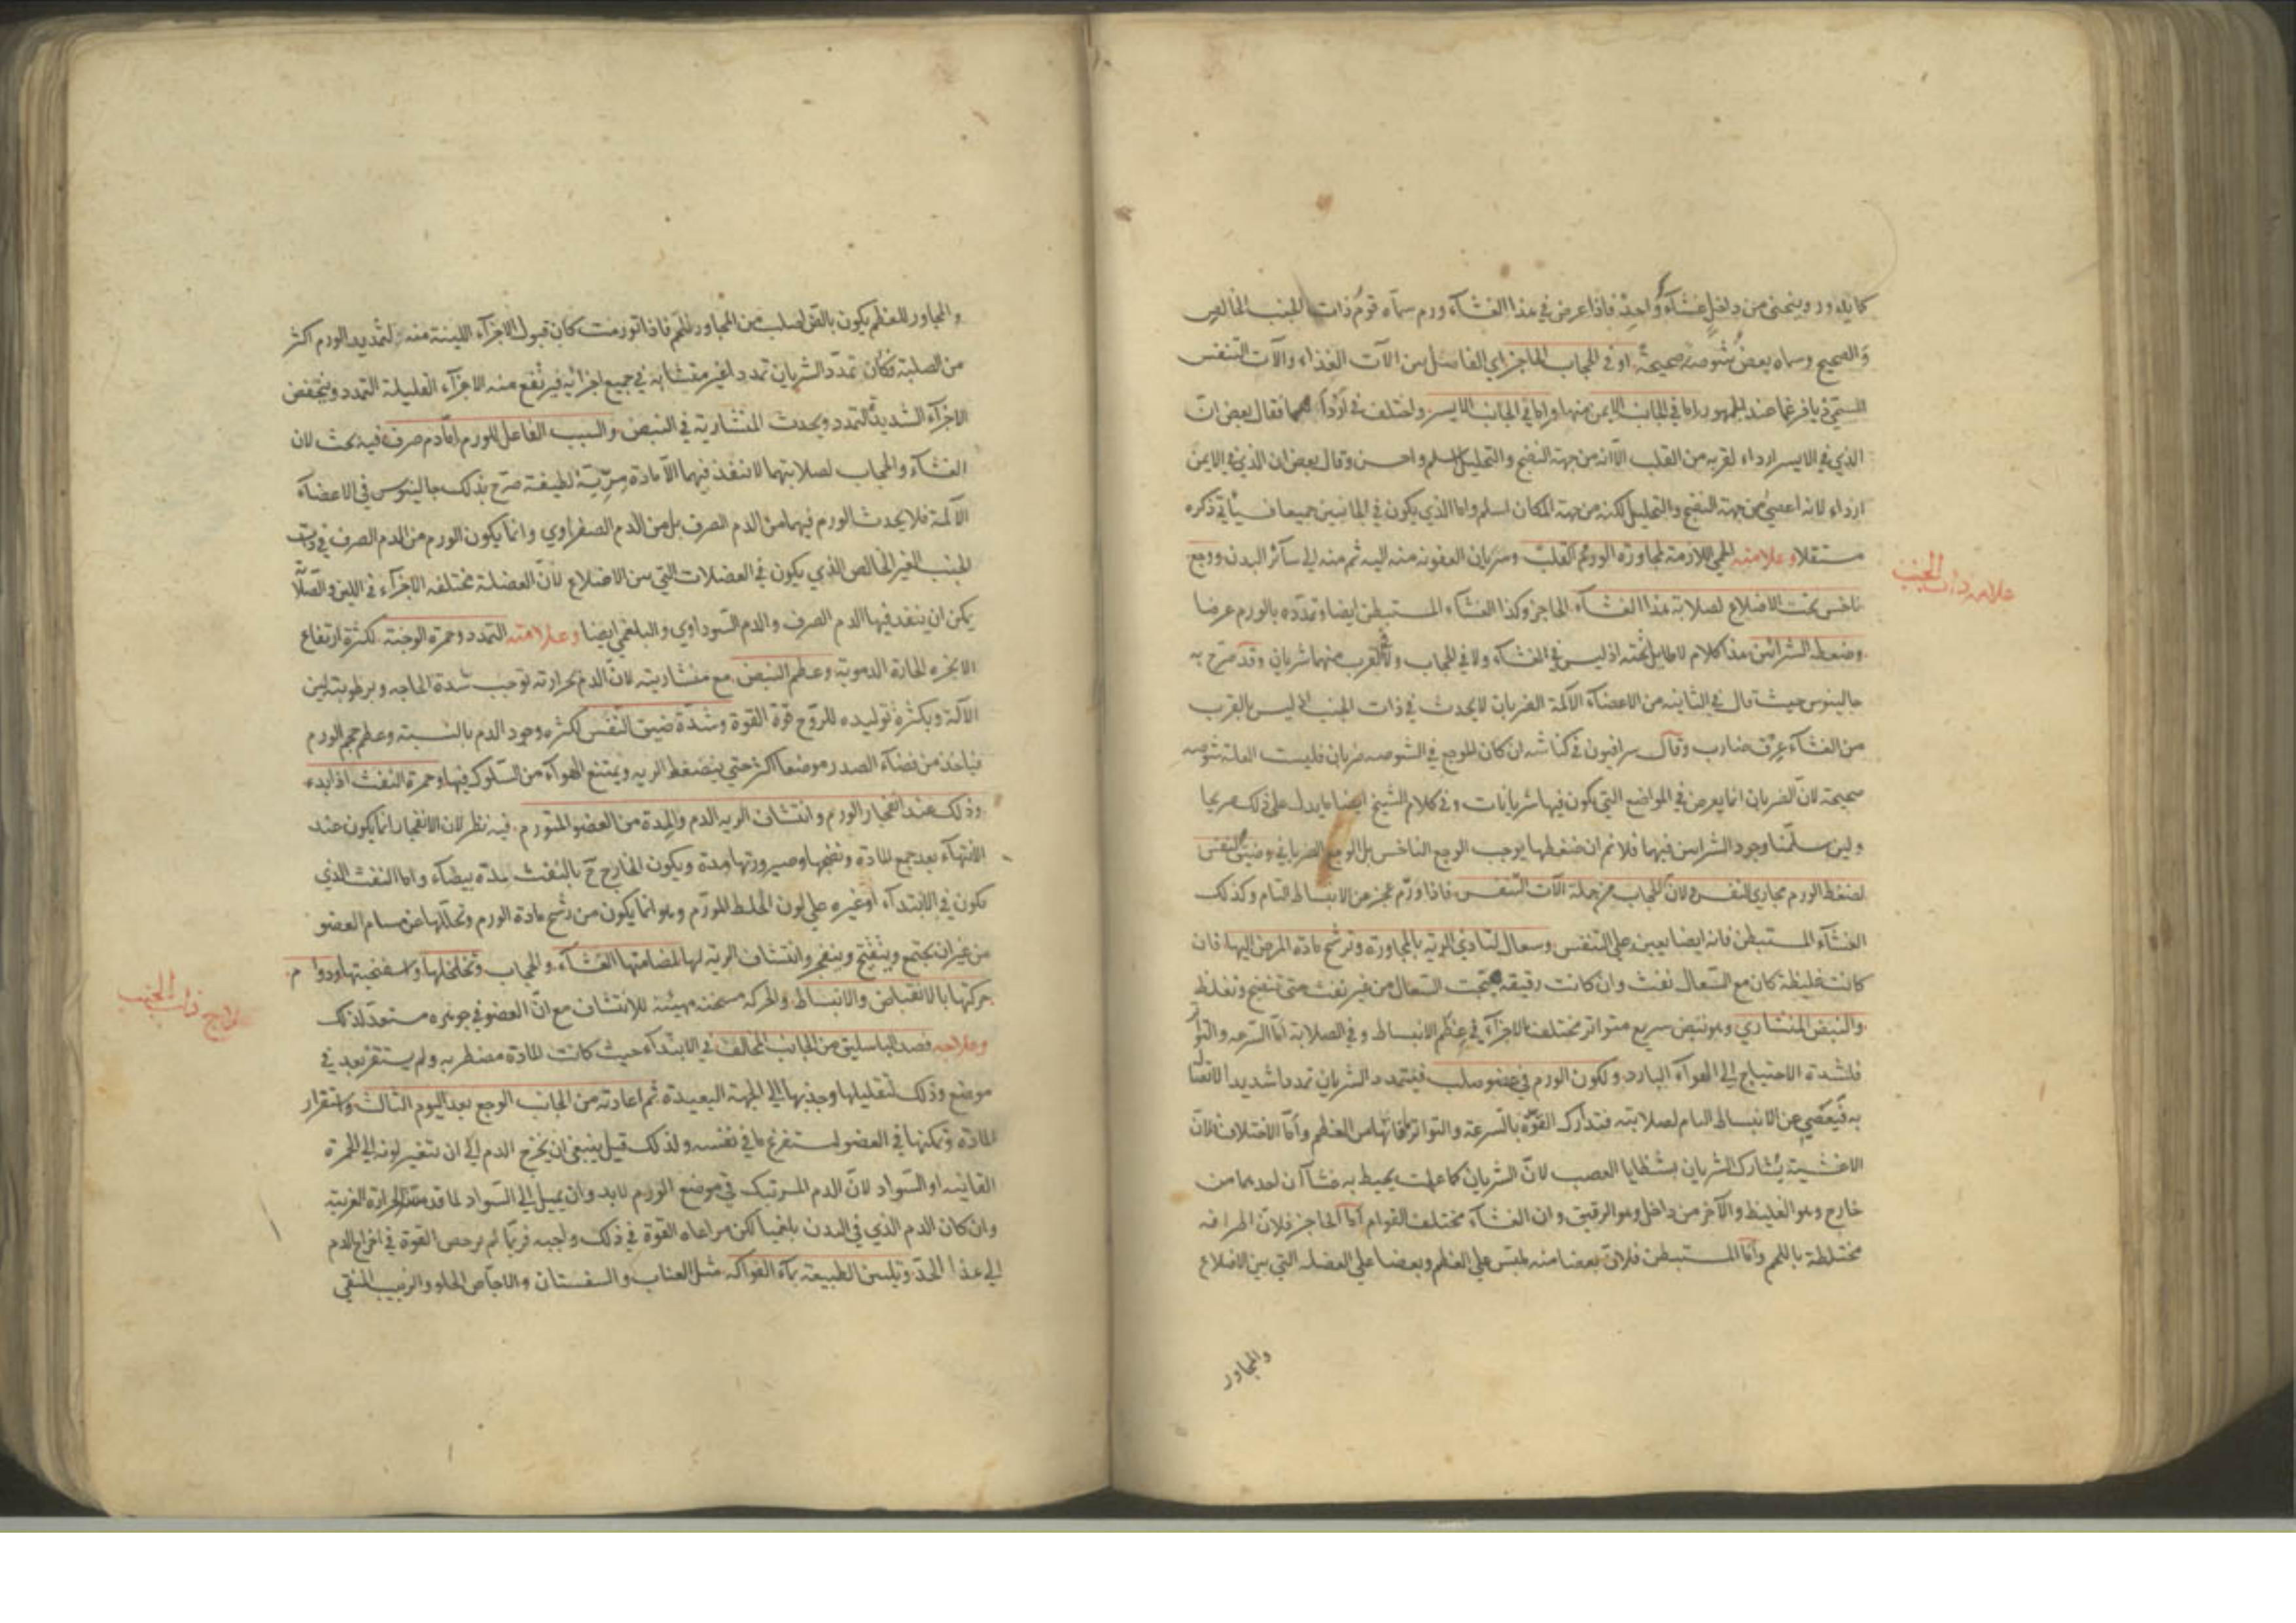 كما يدور وينحني من داخل غشاء واحد فاذا عرض في هذا الغشاء ورم سماه قوم ذات الجنب الخالص
والصحيح وسماه بعض شوصة صحيحة او في الحجاب الحاجز اي الفاصل بين الآت الغذاء والآت التنفس
المسمي ذيافرغما عند الجمهور اما في الجانب الايمن منها واما في الجانب الايسر واختلف في اردأهما فقال بعض ان
الذي في الايسر ارداء لقربه من القلب الا انه من جهة النضج والتحليل اسلم واحسن وقال بعض ان الذي في الايمن
ارداء لانه اعصي من جهة النضج والتحليل لكنه من جهة المكان اسلم واما الذي يكون في الجانبين جميعا فسيأتي ذكره
مستقلا وعلامته الحمي اللازمة لمجاورة الورم القلب وسريان العفونه منه اليه ثم منه الي سآئر البدن ووجع
علامة ذات الجنب
ناخس تحت الاضلاع لصلابة هذا الغشآء الحاجز وكذا الغشآء المستبطن ايضا وتمدده بالورم عرضا
وضغط الشرائين هذا كلام لا طايل تحته اذ ليس في الغشآء ولا في الحجاب ولا بالقرب منهما شريان وقد صرح به
جالينوس حيث قال في الثانيه من الاعضآء الآلمة الضربان لا يحدث في ذات الجنب اذ ليس بالقرب
من الغشآء عرق ضارب وقال سرافيون في كناشه ان كان الوجع في الشوصه ضربان فليست العلة شوصه
صحيحة لان الضربان انما يعرض في المواضع التي يكون فيها شريانات وفي كلام الشيخ ايضا ما يدل علي ذلك صريحا
ولين سلمنا وجود الشرايين فيها فلا نم ان ضغطها يوجب الوجع الناخس بل الوجع الضرباني وضيق النفس
لضغط الورم مجاري النفس ولان الحجاب من جملة الآت التنفس فاذا ورم عجز عن الانبساط التام وكذلك
الغشآء المستبطن فانه ايضا يعين علي التنفس وسعال لتاذي الرية بالمجاورة وترشح مادة المرض اليها فان
كانت غليظة كان مع السعال نفث وان كانت رقيقة هيجت السعال من غير نفث حتي تنضج وتغلظ
والنبض المنشاري وهو نبض سريع متواتر مختلف الاجزآء في عظم الانبساط وفي الصلابة اما السرعه والتواتر
فلشدة الاحتياج الي الهوآء البارد ولكون الورم في عضو صلب فيتمدد الشريان تمددا شديدا لاتصاله
به فيعصي عن الانبساط التام لصلابته فتدارك القوة بالسرعة والتواتر ما فاتها من العظم واما الاختلاف فلان
الاغشية يشارك الشريان بشظايا العصب لان الشريان كما علمت يحيط به غشاآن احدهما من
خارج وهو الغليظ والآخر من داخل وهو الرقيق وان الغشآء مختلف القوام اما الحاجز فلان اطرافه
مختلطة باللحم واما المستبطن فلان بعضا منه ملتبس علي العظم وبعضا علي العضله التي بين الاضلاع
والمجاور
والمجاور للعظم يكون بالقرب اصلب من المجاور للحم فاذا تورمت كان قبول الاجزآء اللينة منه لتمديد الورم اكثر
من الصلبة فكان تمدد الشريان تمددا غير متشابه في جميع اجزائه فيرتفع منه الاجزآء القليلة التمدد وينخفض
الاجزآء الشديدة التمدد ويحدث المنشارية في النبض والسبب الفاعل للورم اما دم صرف فيه بحث لان
الغشآء والحجاب لصلابتهما لا ينفذ فيهما الا مادة مرية لطيفة صرح بذلك جالينوس في الاعضآء
الآلمة فلا يحدث الورم فيهما من الدم الصرف بل من الدم الصفراوي وانما يكون الورم من الدم الصرف في ذات
الجنب الغير الخالص الذي يكون في العضلات التي بين الاضلاع لان العضلة مختلفه الاجزآء في اللين والصلابة
يمكن ان ينفذ فيها الدم الصرف والدم السوداوي والبلغمي ايضا وعلامته التمدد وحمرة الوجنة لكثرة ارتفاع
الابخره الحارة الدمويه وعظم النبض مع منشاريته لان الدم بحرارته توجب شدة الحاجه وبرطوبته لين
الآلة وبكثرة توليده للروح قوة القوة وشدة ضيق النفس لكثره وجود الدم بالنسبة وعظم حجم الورم
فياخذ من فضآء الصدر موضعا اكثر حتي ينضغط الريه ويمتنع الهوآء من السلوك فيها وحمرة النفث اذا بدء
وذلك عند انفجار الورم وانتشاف الريه الدم والمدة من العضو المتورم فيه نظر لان الانفجار انما يكون عند
الانتهآء بعد جمع المادة ونضجها وصيرورتها مدة ويكون الخارج ح بالنفث مدة بيضآء واما النفث الذي
يكون في الابتدآء او غيره علي لون الخلط المورم وهو انما يكون من رشح مادة الورم وتحللها عن مسام العضو
من غير ان يجتمع وينفتح وينفجر وانتشاف الرية لها لمضامتها الغشآء والحجاب وتخلخلها واسفنجيتها ودوام
حركتها بالانقباض والانبساط والحركه مسخنه مهيئة للانتشاف مع ان العضو في جوهره مستعد لذلك
علاج ذات الجنب
وعلاجه فصد الباسليق من الجانب المخالف في الابتدآء حيث كانت المادة مضطربه ولم يستقر بعد في
موضع وذلك لتقليلها وجذبها الي الجهة البعيدة ثم اعادته من الجانب الوجع بعد اليوم الثالث واستقرار
المادة وتمكنها في العضو لستفرغ ما في نفسه ولذلك قيل ينبغي ان يخرج الدم الي ان تتغير لونه الي الحمرة
القانيه او السواد لان الدم المرتبك في موضع الورم لا بد وان يميل الي السواد لما قد الحرارة الغريبة
وان كان الدم الذي في البدن بلغميا لكن مراعاه القوة في ذلك واجبه فربما لم يرخص القوة في اخراج الدم
الي هذا الحد وتليين الطبيعة بمآء الفواكه مثل العناب والسفستان والاجاص الحلو والزبيب المنقي